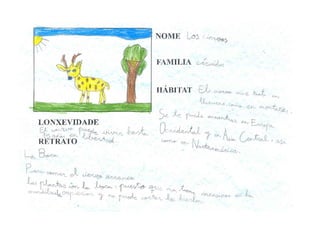 NOME Los ciervos
FAMILIA cérvidos
HÁBITAT El ciervo vive tanto en
llanuras como en montañas.
Se lo puede encontrar en Europa
Occidental y en Asia Central, así
como en Norteamérica.
LONXEVIDADE
El ciervo puede vivir hasta
años en libertad.
RETRATO
La Boca
Para comer el ciervo arranca
las plantas con la lengua, puesto que no tiene incisivos en la
mandíbula superior y no puede cortar la hierba.